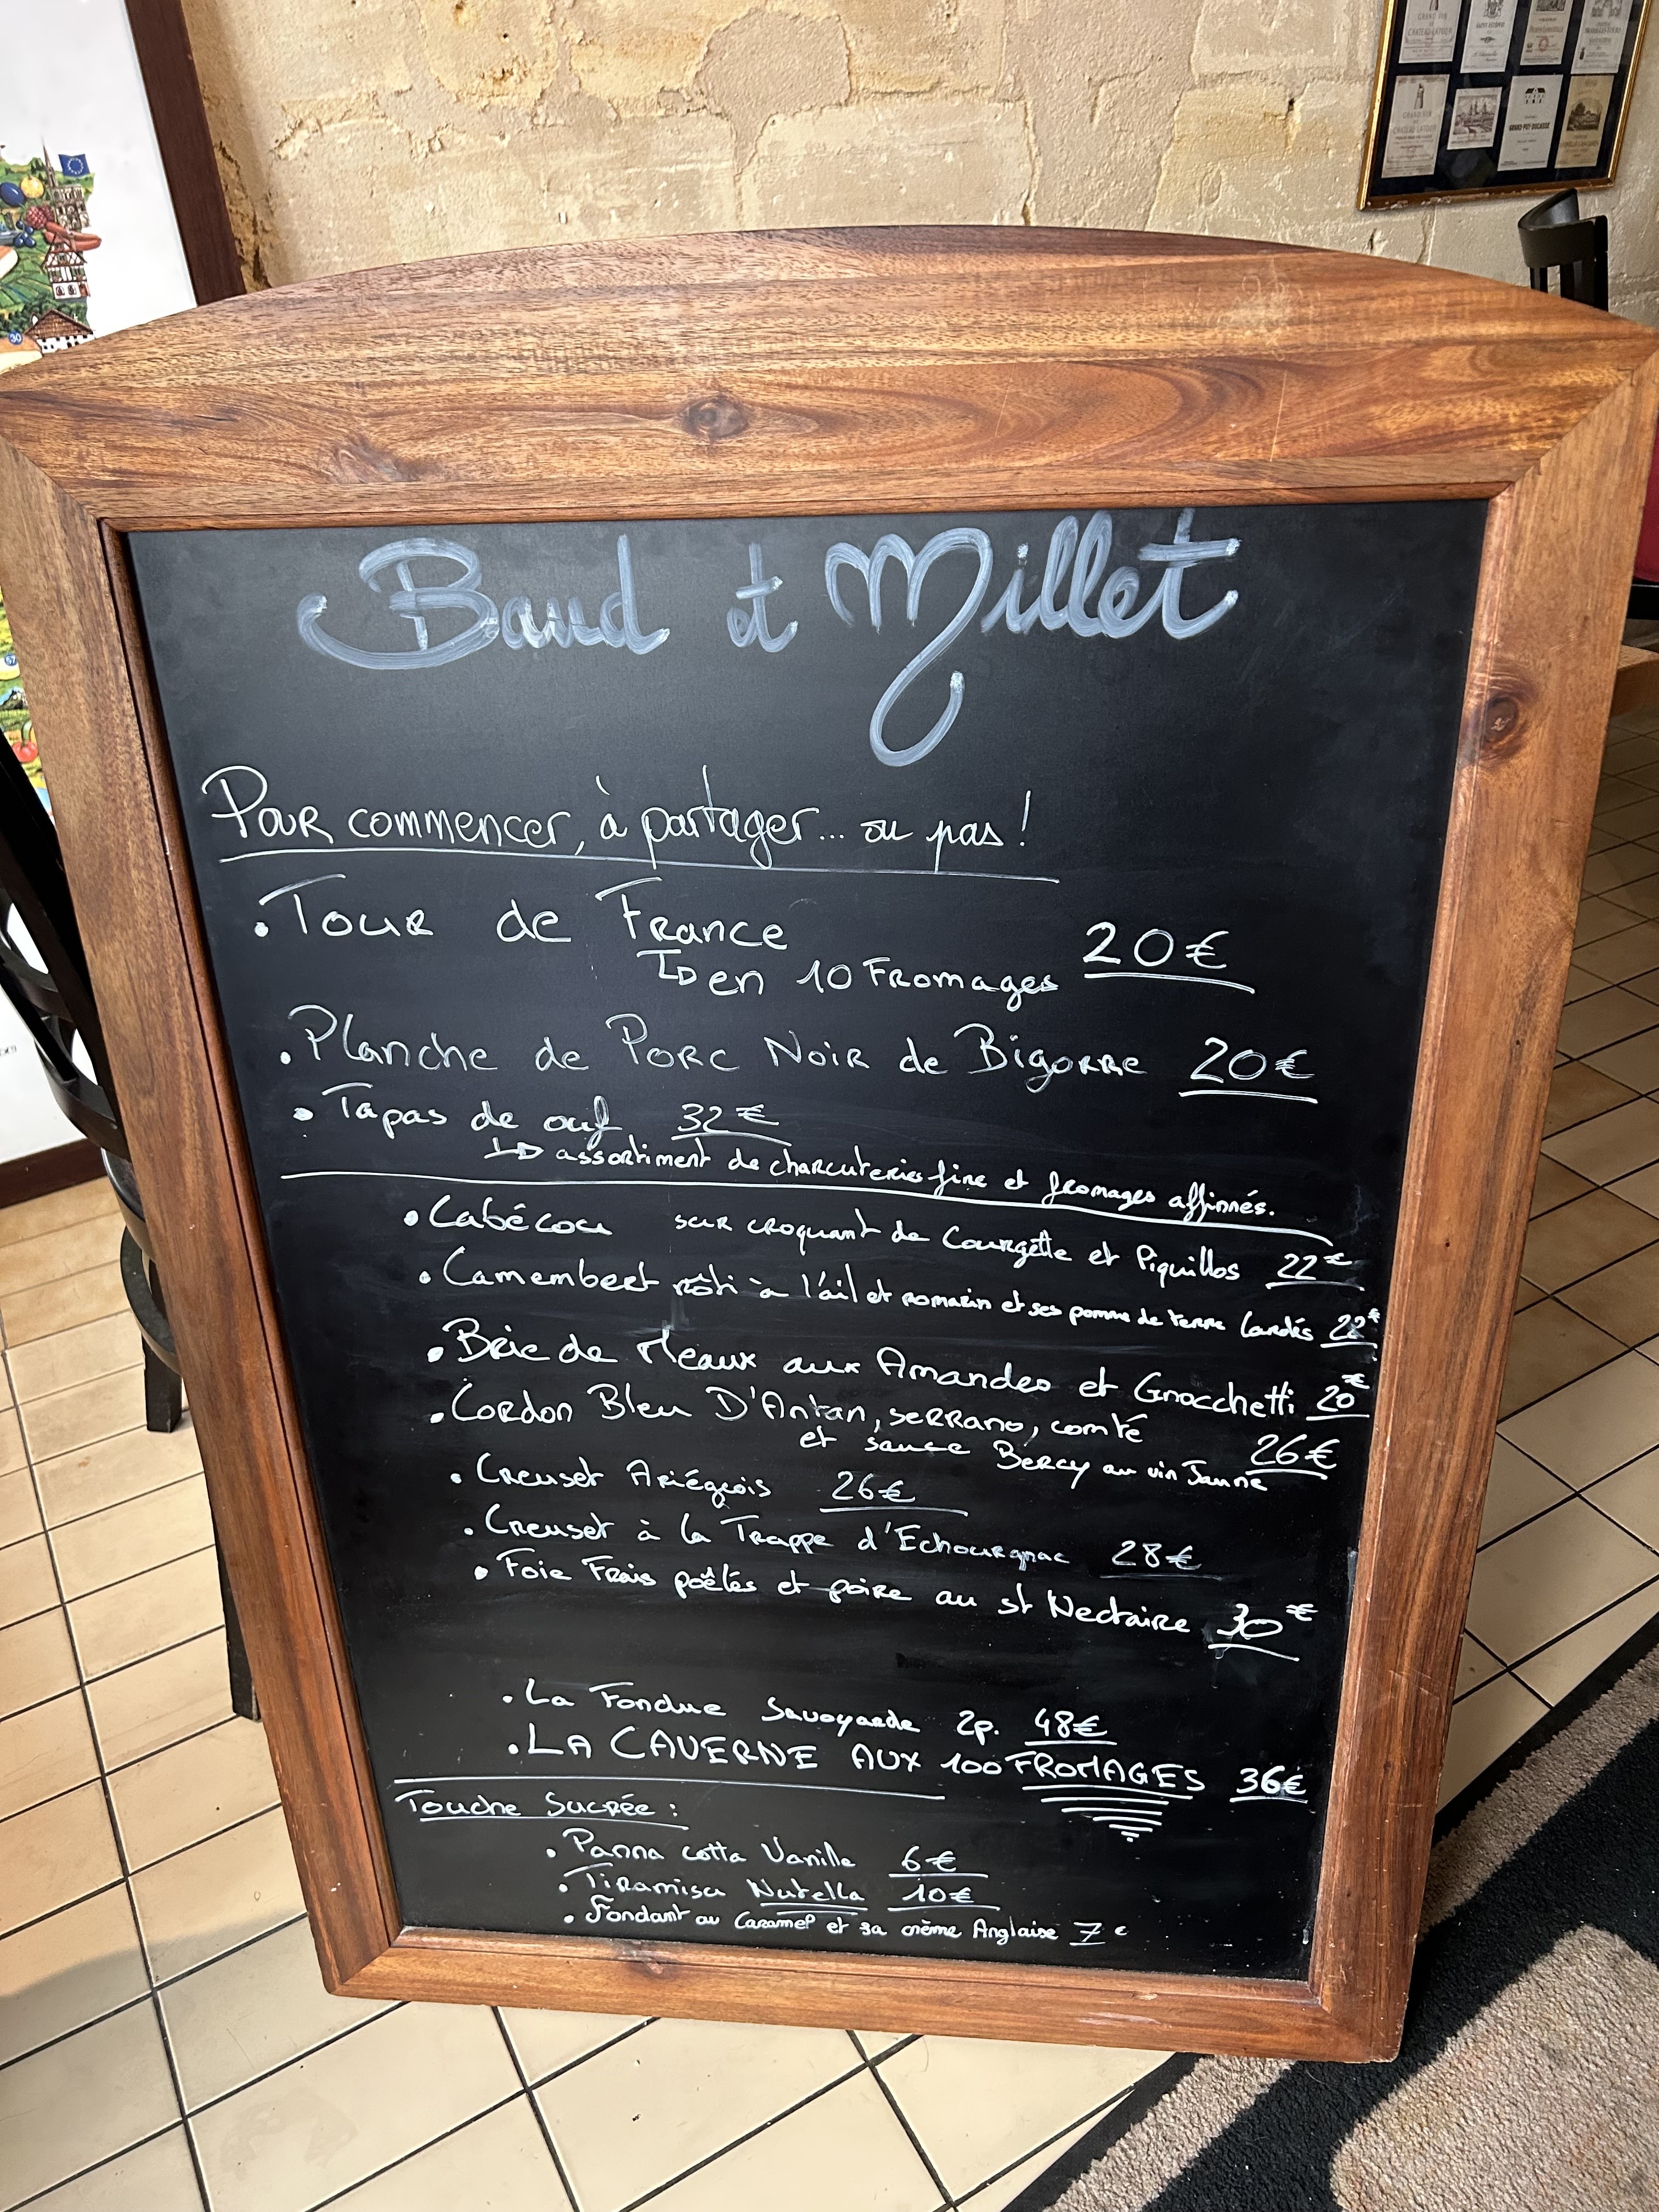 Baud et Millet
Pour commencer, à partager... ou pas !
. Tour de France 20€
en 10 Fromages
. Planche de Porc Noir de Bigorre 20€
. Tapas de ouf 32€
assortiment de charcuteries fine et fromages affinnés.
. Cabécou sur croquant de Courgette et Piquillos 22€
. Camembert rôti à l'ail et romarin et ses pomme de terre lardés 22€
. Brie de Meaux aux Amandes et Gnocchetti 20€
. Cordon Bleu D'Antan, serrano, comté
et sauce Bercy au vin Jaune 26€
. Creuset Ariégeois 26€
. Creuset à la Trappe d'Echourgnac 28€
. Foie Frais poêlés et poire au st Nectaire 30€
. La Fondue Savoyarde 2p. 48€
. LA CAVERNE AUX 100 FROMAGES 36€
Touche Sucrée :
. Panna cotta Vanille 6€
. Tiramisu Nutella 10€
. Fondant au Caramel et sa crème Anglaise 7€
GRAND-PUY DUCASSE
30